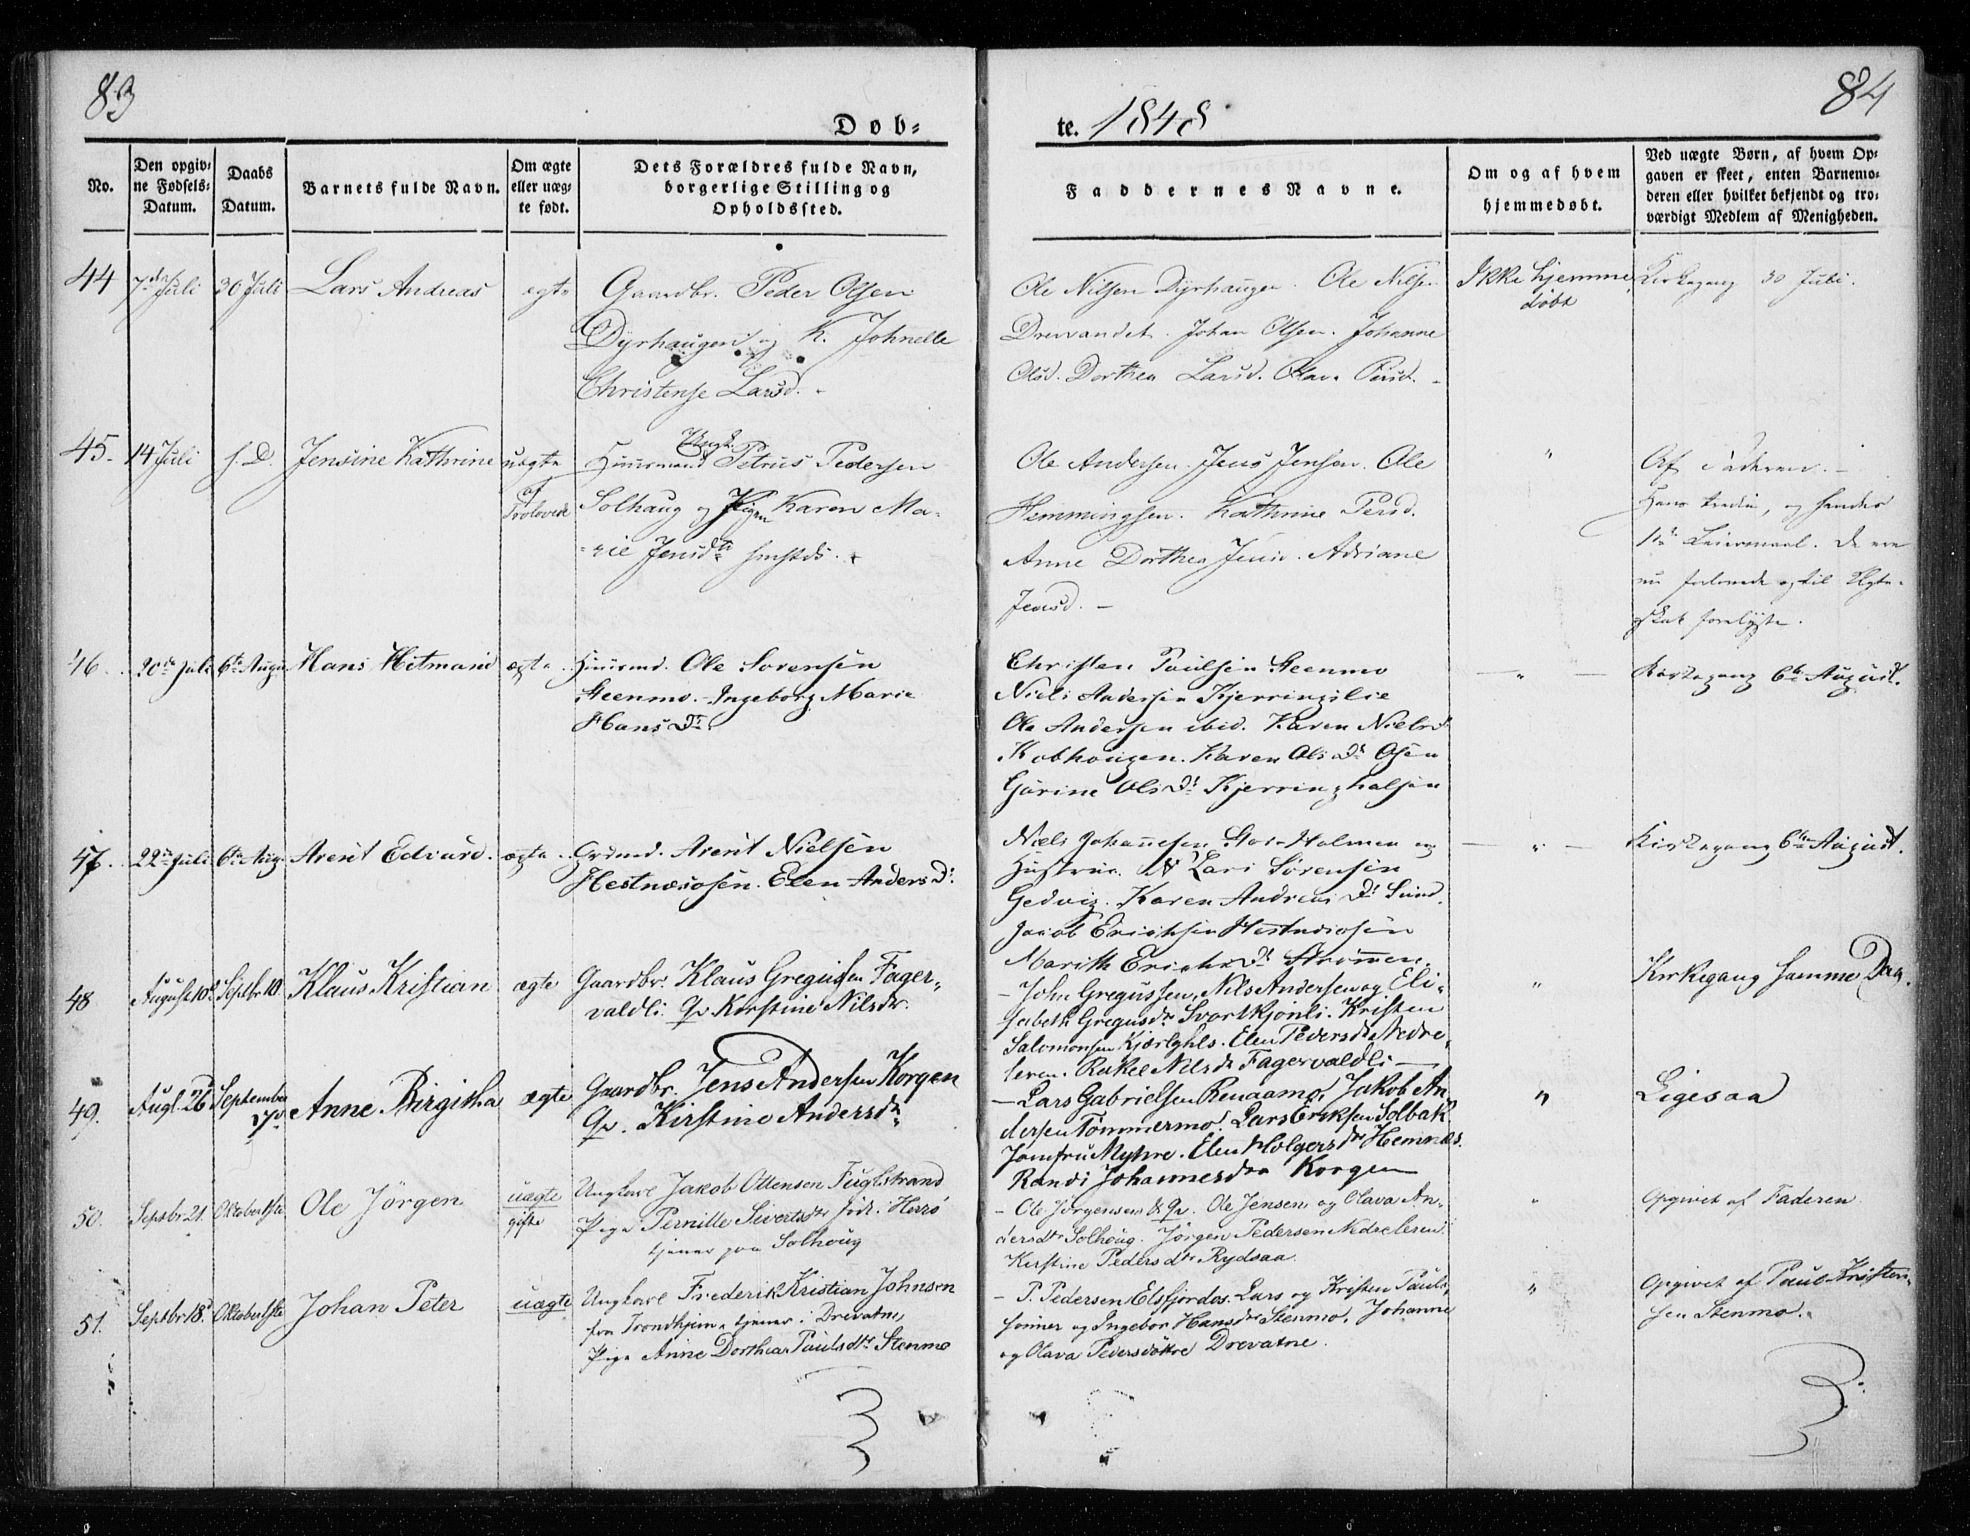 83
84
Døb=
te. 1848
No.
Den opgiv=
ne Fødsels=
Datum.
Daabs
Datum.
Barnets fulde Navn.
Om ægte
eller uæg=
te født.
Dets Forældres fulde Navn,
borgerlige Stilling og
Opholdssted.
Faddernes Navne.
Om og af hvem
hjemmedøbt.
Ved uægte Børn, af hvem Op=
gaven er skeet, enten Barnemo=
deren eller hvilket bekjendt og tro=
værdigt Medlem af Menigheden.
44 7de Juli 30 Juli Lars Andreas ægte
Gaardbr. Peder Olsen
Dyrhaugen og K. Johnelle
Christense Larsd.
Ole Nilsen Dyrhaugen. Ole Nilsen
Drevvandet. Johan Olsen. Johanne
Olsd. Dorthea Larsd. Olava Persd. -
Ikke hjemme
døbt
Kirkegang 30 Juli.
45. 14 Juli s. D. Jensine Kathrine uægte
af
Trolovede
Ungk.
Huusmand Petrus Pedersen
Solhaug og Pigen Karen Ma-
-rie Jensdtr
Ole Andersen. Jens Jensen. Ole
Hemmingsen. Kathrine Persd.
Anne Dorthea Jensd. Adriane
Jensd. -
"
Af Faderen. -
Hans tredie, og hendes
1ste Leiermaal. De ere
nu trolovede og til Ægte-
skab forelyste.
46. 20de Juli 6te Augu. Hans Hitmand ægte.
Huusmd. Ole Sørensen
Steenmo. Ingeborg Marie
Hans Dr.
Christen Paulsen Steenmo
Niels Andersen Kjerringlie
Ole Andersen ibid. Karen Nielsd
Kobhougen. Karen Ols Dr Osen
Gurine Ols Dr Kjerringhalsen
"
Kirkegang 6te August.
47. 22de Juli 6te Aug. Arent Edvard. ægte.
Grdmd. Arent Nielsen
Hestnæsosen. Elen Anders Dr.
Niels Johannesen Holmen og
Hustrue. Lars Sørensen
Gedvig. Karen Andreas Dr Sund.
Jacob Erichsen Hestnæsosen
Marith Erichs Dr Strømmen.
"
Kirkegang 6te August.
48 August 10de Septbr 10. Klaus Kristian ægte
Gaardbr. Klaus Gregussen Fager-
valdli. Qv Kerstine Nilsdtr.
- John Gregussen, Nils Andersen og Eli-
sabeth Gregusdtr Svortkjønli. Kristen
Salomonsen Kjærlghls. Elen Pedersdtr Nedre-
leren. Rakel Nilsdtr Fagervaldli -
"
Kirkegang samme Dag.
49. Augl. 26 September
17de Anne Birgitha ægte
Gaardbr. Jens Andersen Korgen
Qv. Kirstine Andersdtr.
- Lars Gabrielsen Renaamo, Jakob An-
dersen Tømmermo. Lars Eriksen Solbak
Jomfru Myhre. Elen Holgersdtr Hemnæs.
Randi Johannesdtr Korgen
"
Ligesaa
50. Septbr 21. Oktober 1ste Ole Jörgen uægte
gifte
Ungkarl Jakob Ottensen Fuglstrand
Pige Pernille Sivertsdtr født i Herrø
tjener paa Solhoug
- Ole Jørgensen & Qv. Ole Jensen og Olava An-
dersdtr Solhoug. Jørgen Pedersen Nedreleren.
Kerstine Pedersdtr Rydsaa.
"
Opgivet af Faderen
51. Septbr 18. Oktober 1ste Johan Peter uægte
Ungkarl Frederik Kristian Johnsen
fra Trondhjem, tjener i Drevatne,
Pige Anne Dorthea Paulsdtr Stenmo
- P. Pedersen Elsfjordos. Lars og Kristen Pauls-
sønner og Ingebor Hansdtr Stenmo. Johanne
og Olava Pedersdøttre Drevatne.
"
Opgivet af Paul Kristen-
sen Stenmo.